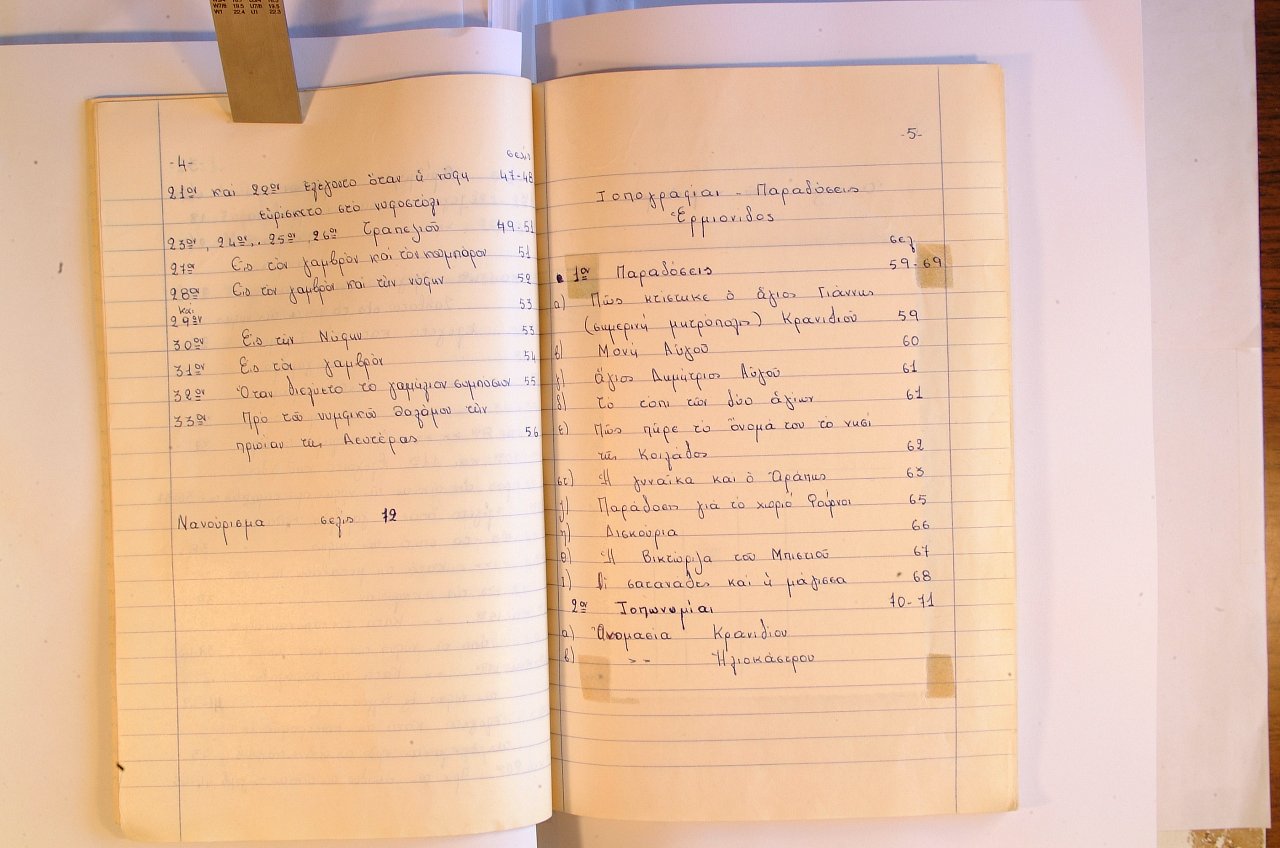 -4-
σελίς
21ον καὶ 22ον Ἐλέγοντο ὅταν ἡ νύφη 47-48
εὑρίσκετο στο νυφοστόλι
23ον, 24ον, 25ον, 26ον Τραπεζιοῦ 49-51
27ον Εἰς τὸν γαμβρὸν καὶ τὸν κουμπάρον 51
28ον Εἰς τὸν γαμβρὸν καὶ τὴν νύφην 52
καὶ
29ον 53
30ον Εἰς τὴν Νύφην 53
31ον Εἰς τὸν γαμβρὸν 54
32ον Ὅταν διελύετο τὸ γαμήλιον συμπόσιον 55
33ον Πρὸ τοῦ νυμφικοῦ θαλάμου τὴν
πρωίαν τῆς Δευτέρας 56
Νανούρισμα σελίς 72
-5-
Τοπογραφίαι - Παραδόσεις
Ἑρμιονίδος
σελ
1ον Παραδόσεις 59-69
α) Πῶς κτίστηκε ὁ ἅγιος Γιάννης
(σημερινή μητρόπολις) Κρανιδίου 59
β) Μονή Αὐγοῦ 60
γ) ἅγιος Δημήτριος Αὐγοῦ 61
δ) τὸ τόπι τῶν δύο ἁγίων 61
ε) Πῶς πῆρε τὸ ὄνομά του τὸ νησί
τῆς Κοιλάδος 62
στ) Ἡ γυναίκα καὶ ὁ Ἀράπης 63
ζ) Παράδοσις γιὰ τὸ χωριό Φοῦρνοι 65
η) Δισκούρια 66
θ) Ἡ Βικτώριζα τοῦ Μπιστιοῦ 67
ι) Οἱ σατανάδες καὶ ἡ μάγισσα 68
2ον Τοπωνυμίαι 70-71
α) Ὀνομασία Κρανιδίου
β) >> Ἡλιοκάστρου